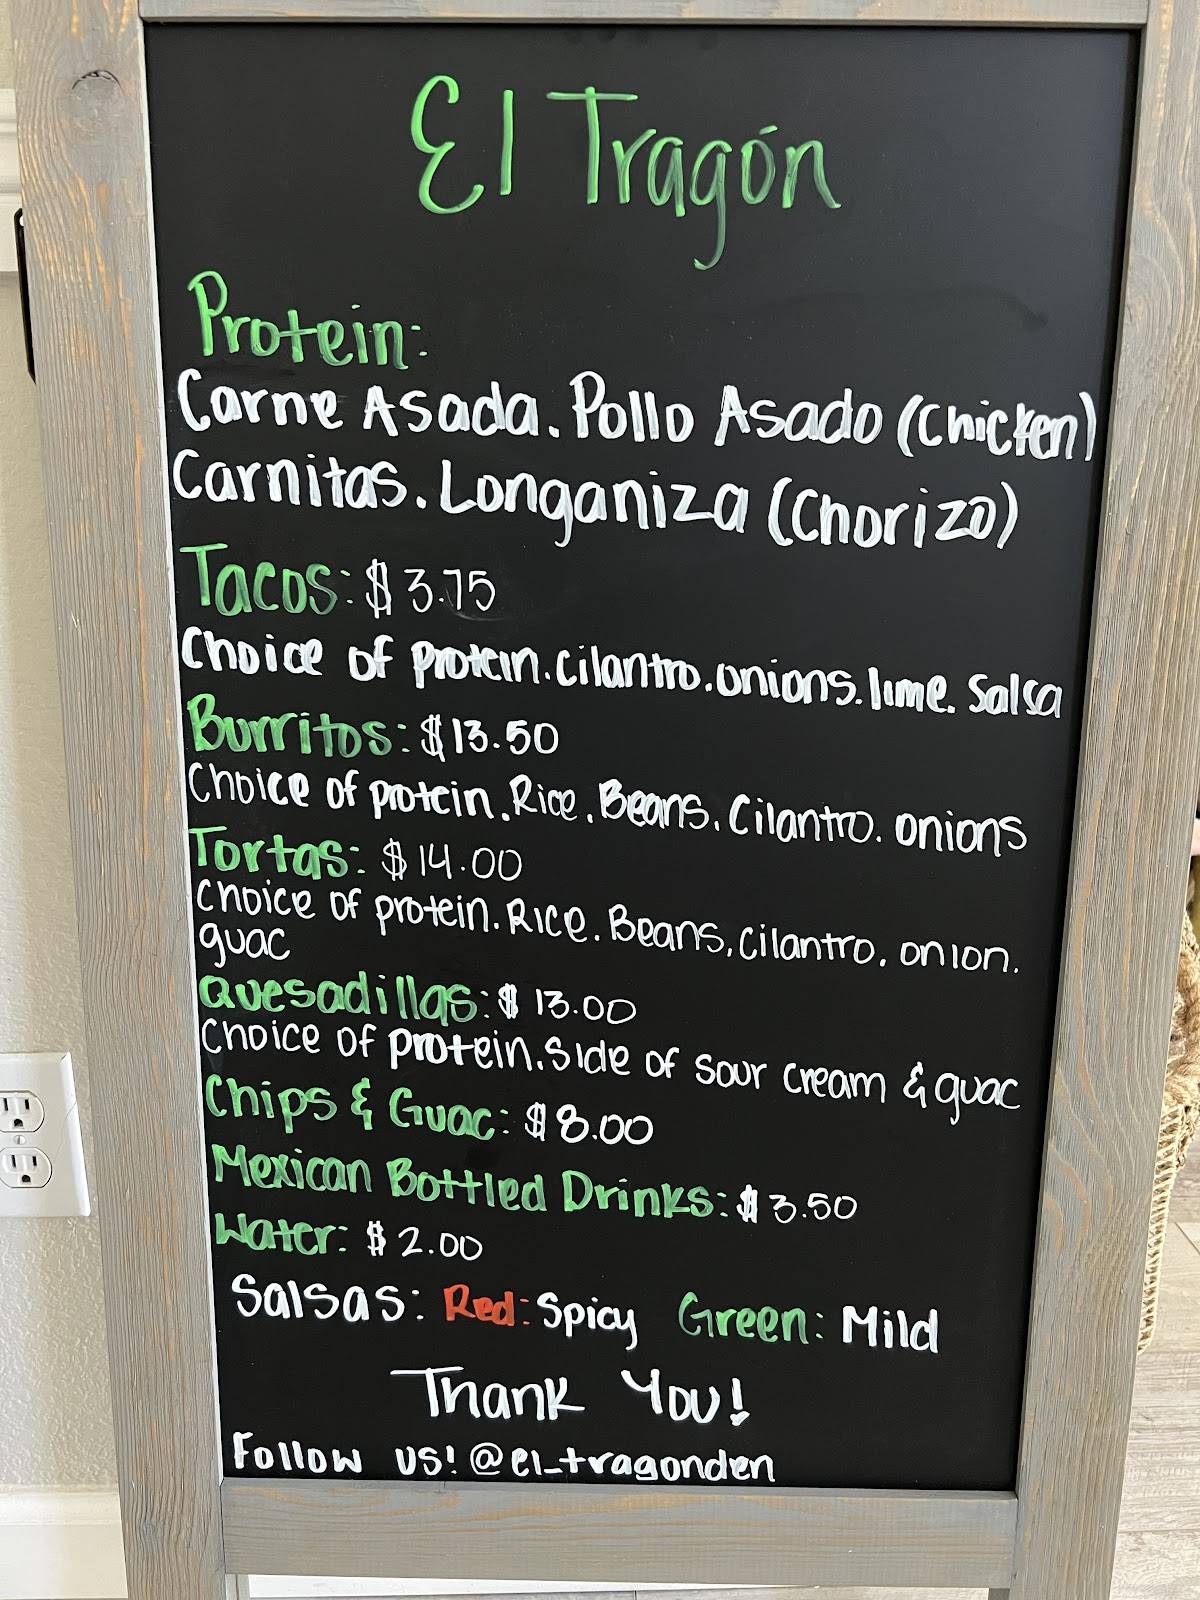 El Tragón
Protein:
Carne Asada. Pollo Asado (Chicken)
Carnitas. Longaniza (Chorizo)
Tacos: $3.75
Choice of protein. cilantro. onions. lime. Salsa
Burritos: $13.50
Choice of protein. Rice. Beans. Cilantro. onions
Tortas: $14.00
Choice of protein. Rice. Beans, cilantro. onion.
guac
Quesadillas: $13.00
Choice of protein. Side of sour cream & guac
Chips & Guac: $8.00
Mexican Bottled Drinks: $3.50
Water: $2.00
Salsas: Red: Spicy Green: Mild
Thank You!
Follow us! @el_tragonden